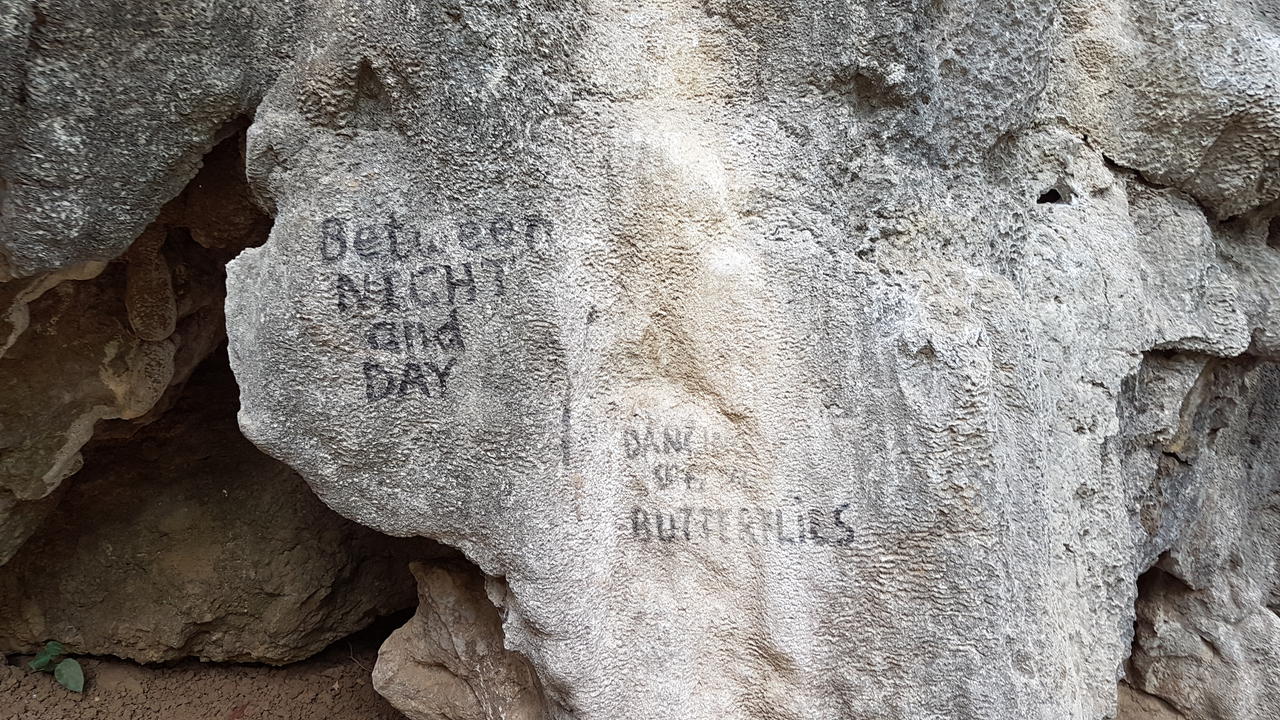 Between
NIGHT
and
DAY
BUTTERFLIES